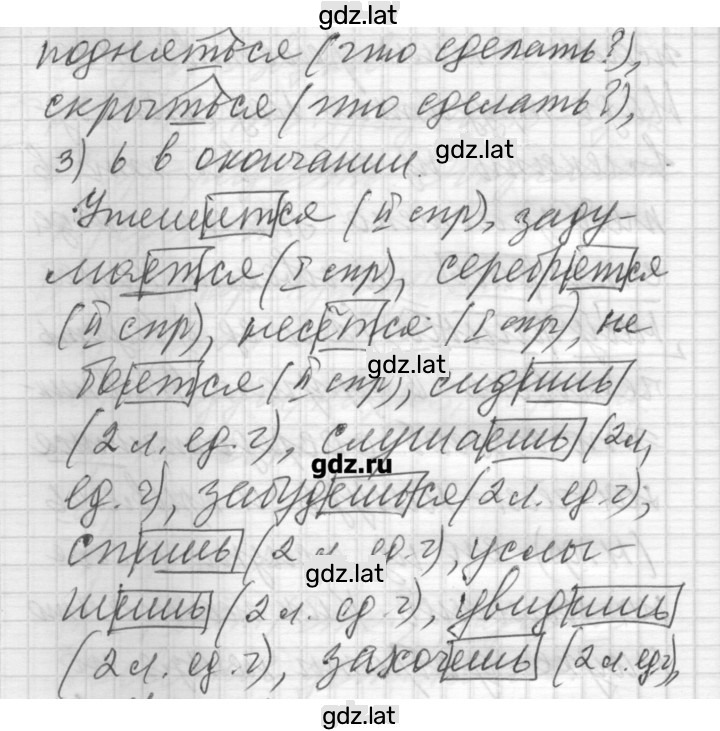 gdz.lat
подняться (что сделать?),
скрыться (что сделать?),
3) ь в окончании.
gdz.lat
Утешится (II спр), заду-
мается (I спр), серебрется
(II спр), несётся (I спр), не
gdz.lat
боется (II спр), сидишь
(2 л. ед. ч), слушаешь (2л,
gdz.ru
ед. ч), забудешься (2 л. ед. ч),
спишь (2 л. ед. ч), услы-
gdz.lat
шишь (2 л. ед. ч), увидишь
(2 л. ед. ч), захочешь (2л. ед ч),
gdz.lat